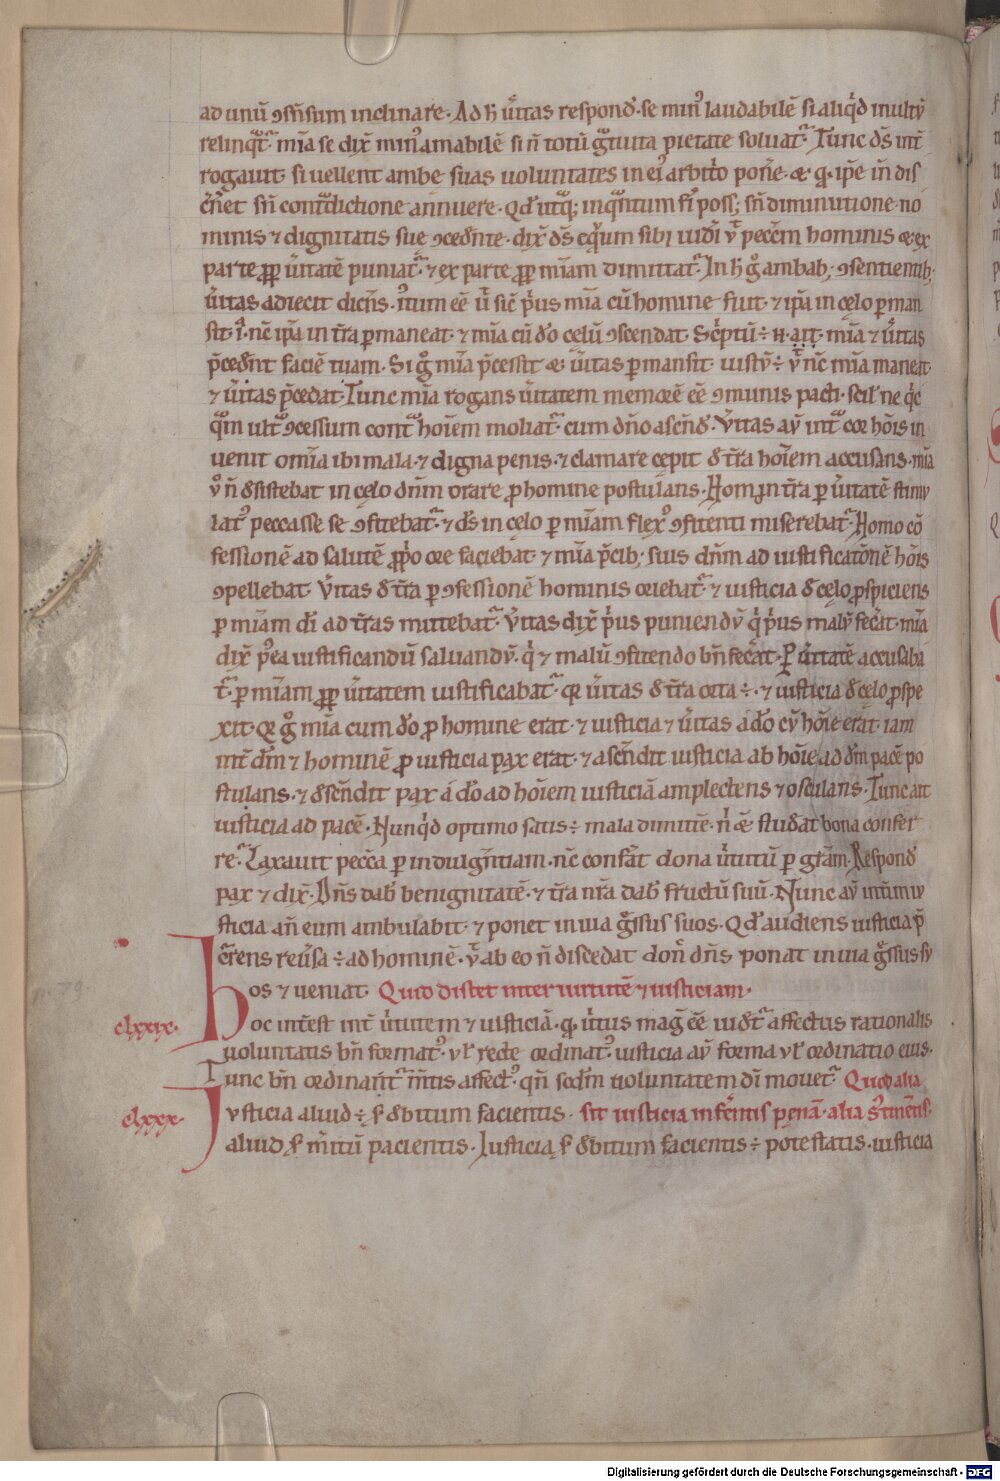 ad unū ↄsn̄sum inclinare. Ad h̄ ũitas respond̄. se minꝰ laudabilē si aliq̇d inultū
relinqͣt̃. mīa se dix̄ minꝰ amabilē si n̄ totū gͣtuita pietate soluat̃. Tunc dn̄s int̃
rogauit si uellent ambe suas uoluntates in eiꝰ arbitͥo pon̄e. & qͥ ip̄e in dis
c̄n̄et sn̄ contͣdictione annuere. Qd̄ utͣq; inqͣntum fͥ poss; sn̄ diminutione no
minis ⁊ dignitatis sue ↄced̄nte. dix̄ ds̄ equum sibi uid̄i ut̄ pecc̄m hominis & ex
parte ꝓp̃ ũitatē puniat̃. ⁊ ex parte ꝓp̃ mīam dimittat̃. In h̄ gͦ ambab; ↄsentientib;
ũitas adiecit dicn̄s. it̃um eē ut̄ sic̄ pͥus mīa cū homine fuit. ⁊ ip̄a in cęlo ꝑman
sit. ꝑmaneat ⁊ mīa cū do celū ↄscendat. Sc̄ptū ÷ n̄. ait. mīa ⁊ ũitas
p̄ced̄nt faciē tuam. Si gͦ mīa p̄cessit & ũitas ꝑmansit. iustū ÷ ut̄ nc̄ mīa maneat
⁊ ũitas p̄cedat. Tunc mīa rogans ũitatem memorē eē ↄmunis pacti. scil̄ ne
qͣm ultͦ ↄcessum contͣ hoīem moliat̃. cum dn̄o ascn̄d̄. Ũitas aū intͣ cor hoīs in
uenit omīa ibi mala. ⁊ digna penis. ⁊ clamare cepit d̄ t̃ra hoīem accusans. mīa
uͦ n̄ d̄sistebat in cęlo dn̄m orare ꝓ homine postulans. Homo in t̃ra ꝑ ũitatē stimu
latꝰ peccasse se ↄfitebat̃. ⁊ ds̄ in cęlo ꝑ mīam flexꝰ ↄfitenti miserebat̃. Homo cō
fessionē ad salutē ꝓpͥo ore faciebat ⁊ mīa p̄cib; suis dn̄m ad iustificatōnē hoīs
ↄpellebat. Ũitas d̄ t̃ra ꝑ ↄfessionē hominis oriebat̃. ⁊ iusticia d̄ cęlo ꝓspiciens
ꝑ mīam di ad t̃ras mittebat̃. Ũitas dix̄ pͥus puniendū qͥ pͥus malū fec̄at. mīa
dix̄ p̄ea iustificandū saluandū. qͥ ⁊ malū ↄfitendo bn̄ fec̄at. Ꝑ ũitatē accusaba
t̃. ꝑ mīam ꝓp̃ ũitatem iustificabat̃. qr̄ ũitas d̄ t̃ra orta ÷. ⁊ iusticia d̄ cęlo ꝓspe
xit. Qr̄ gͦ mīa cum do ꝓ homine erat. ⁊ iusticia ⁊ ũitas a do cū hoīe erat. iam
int̃ dm̄ ⁊ hominē ꝓ iusticia pax erat. ⁊ ascn̄dit iusticia ab hoīe ad dm̄ pacē po
stulans. ⁊ d̄scn̄dit pax a do ad hoīem iusticiā amplectens ⁊ osculans. Tunc ait
iusticia ad pacē. Nunq̇d optimo satis ÷ mala dimitt̃e. n̄ &̄ stud̄at bona confer
re. Laxauit pecc̄a ꝑ indulg̃ntiam. nc̄ confāt dona ũtutū ꝑ gr̄am. Respond̄
pax ⁊ dix̄. Dn̄s dab̄ benignitatē. ⁊ t̃ra nr̄a dab̄ fructū suū. Nunc aū int̃im iu
sticia an̄ eum ambulabit. ⁊ ponet in uia gͤssus suos. Qd̄ audiens iusticia p̄
c̃rens reũsa ÷ ad hominē. ut̄ ab eo n̄ discedat don̄ dn̄s ponat in uia gͤssus su
os ⁊ ueniat. Quid distet inter uirtutē ⁊ iusticiam.
clxxix. Hoc int̃est int̃ ũtutem ⁊ iusticiā. qͥ ũtus mag̃ eē uid̄t̃ affectus rationalis
uoluntatis bn̄ formatꝰ. ul̄ recte ordinatꝰ. iusticia aū forma ul̄ ordinatio eius.
Tunc bn̄ ordinant̃ m̄tis affectꝰ. qn̄ scd̄m uoluntatem di mouet̃. Quod alia
clxxx. Iusticia aliud ÷ s̄ d̄bitum facientis. sit iusticia inferentis penā. alia sͦtinētis.
aliud s̄ m̃itū pacientis. Iusticia s̄ d̄bitum facientis ÷ potestatis. iusticia
Digitalisierung gefördert durch die Deutsche Forschungsgemeinschaft - DFG